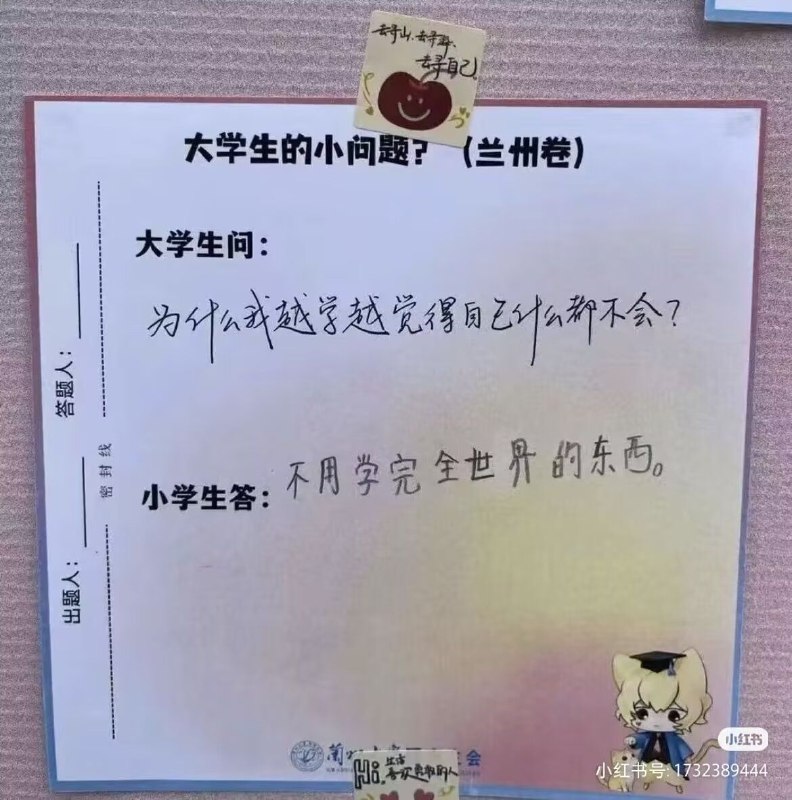 去寻山、去寻海、
去寻自己。
大学生的小问题？（兰州卷）
大学生问：
为什么我越学越觉得自己什么都不会？
小学生答：
不用学完全世界的东西。
答题人：
密封线
出题人：
会
Hi,生活
小红书
小红书号: 1732389444